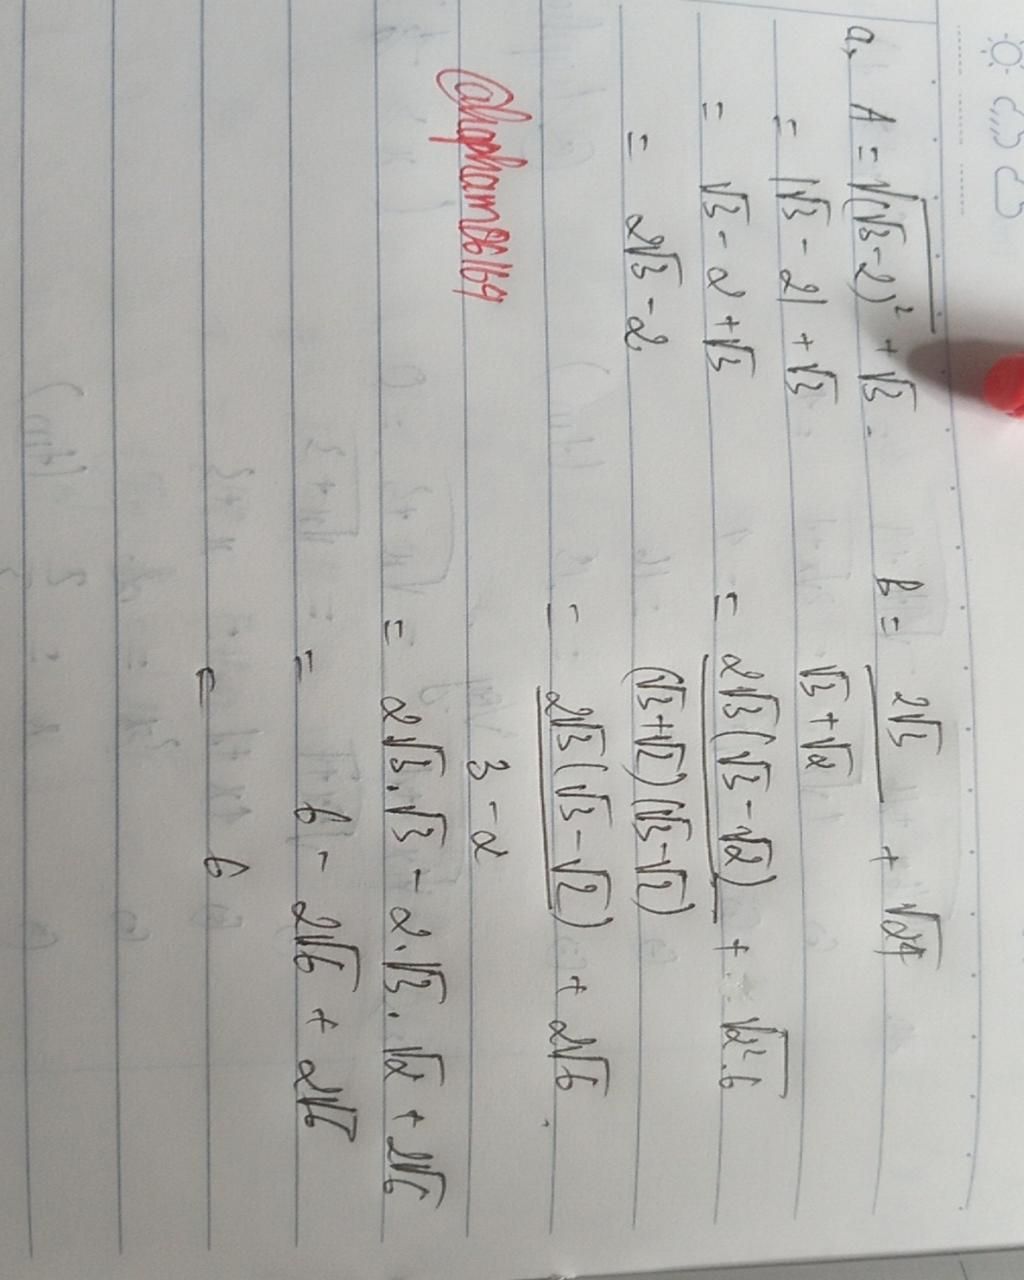 a, A = √(√3 - 2)² + √3
= |√3 - 2| + √3
= √3 - 2 + √3
= 2√3 - 2
@hopham06169
B = 2√3 / √3 + √2 + √24
= 2√3(√3 - √2) / (√3+√2)(√3-√2) + √2².6
= 2√3(√3 - √2) / 3 - 2 + 2√6
= 2√3.√3 - 2.√3.√2 + 2√6
= 6 - 2√6 + 2√6
= 6